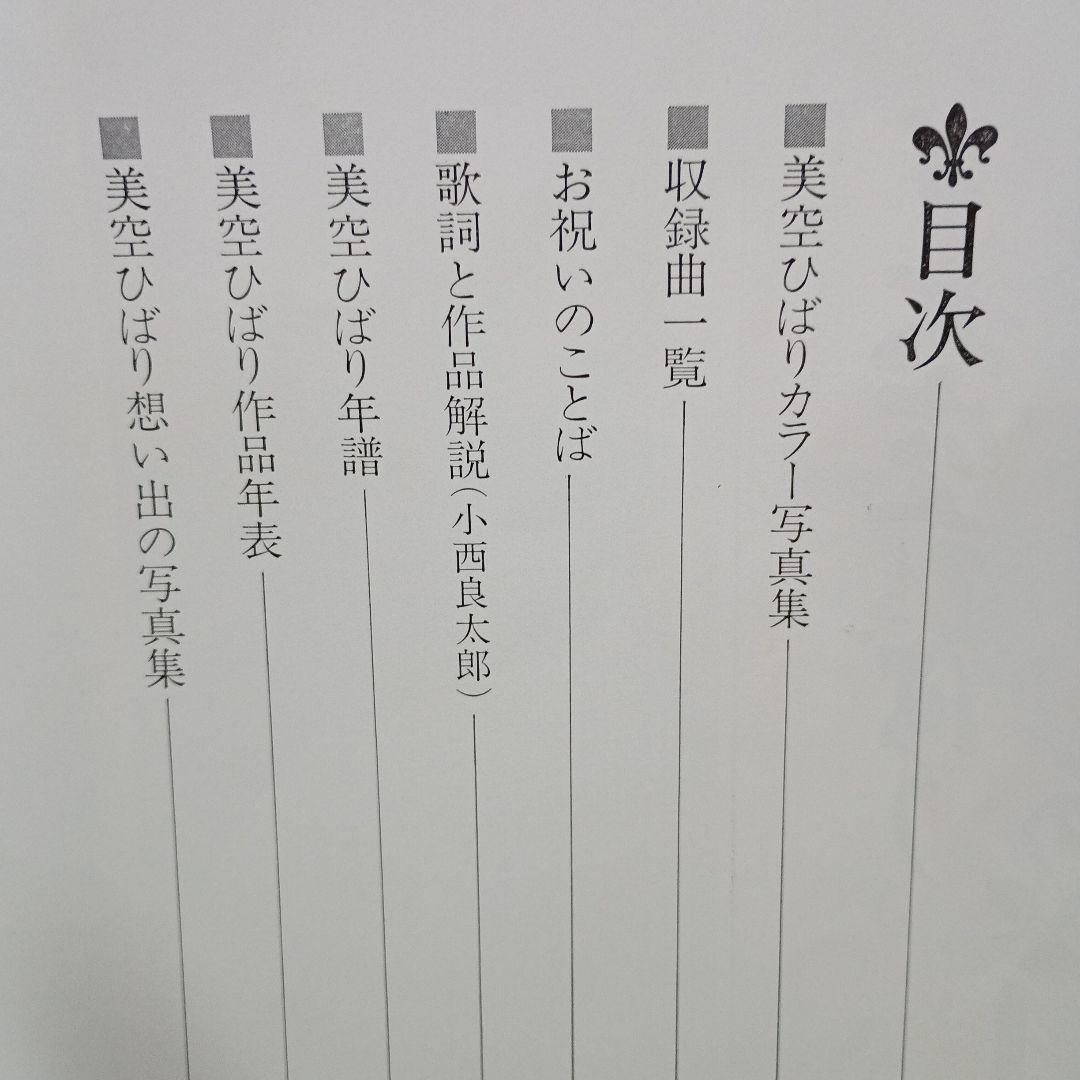 目次
美空ひばりカラー写真集
収録曲一覧
お祝いのことば
歌詞と作品解説(小西良太郎)
美空ひばり年譜
美空ひばり作品年表
美空ひばり想い出の写真集